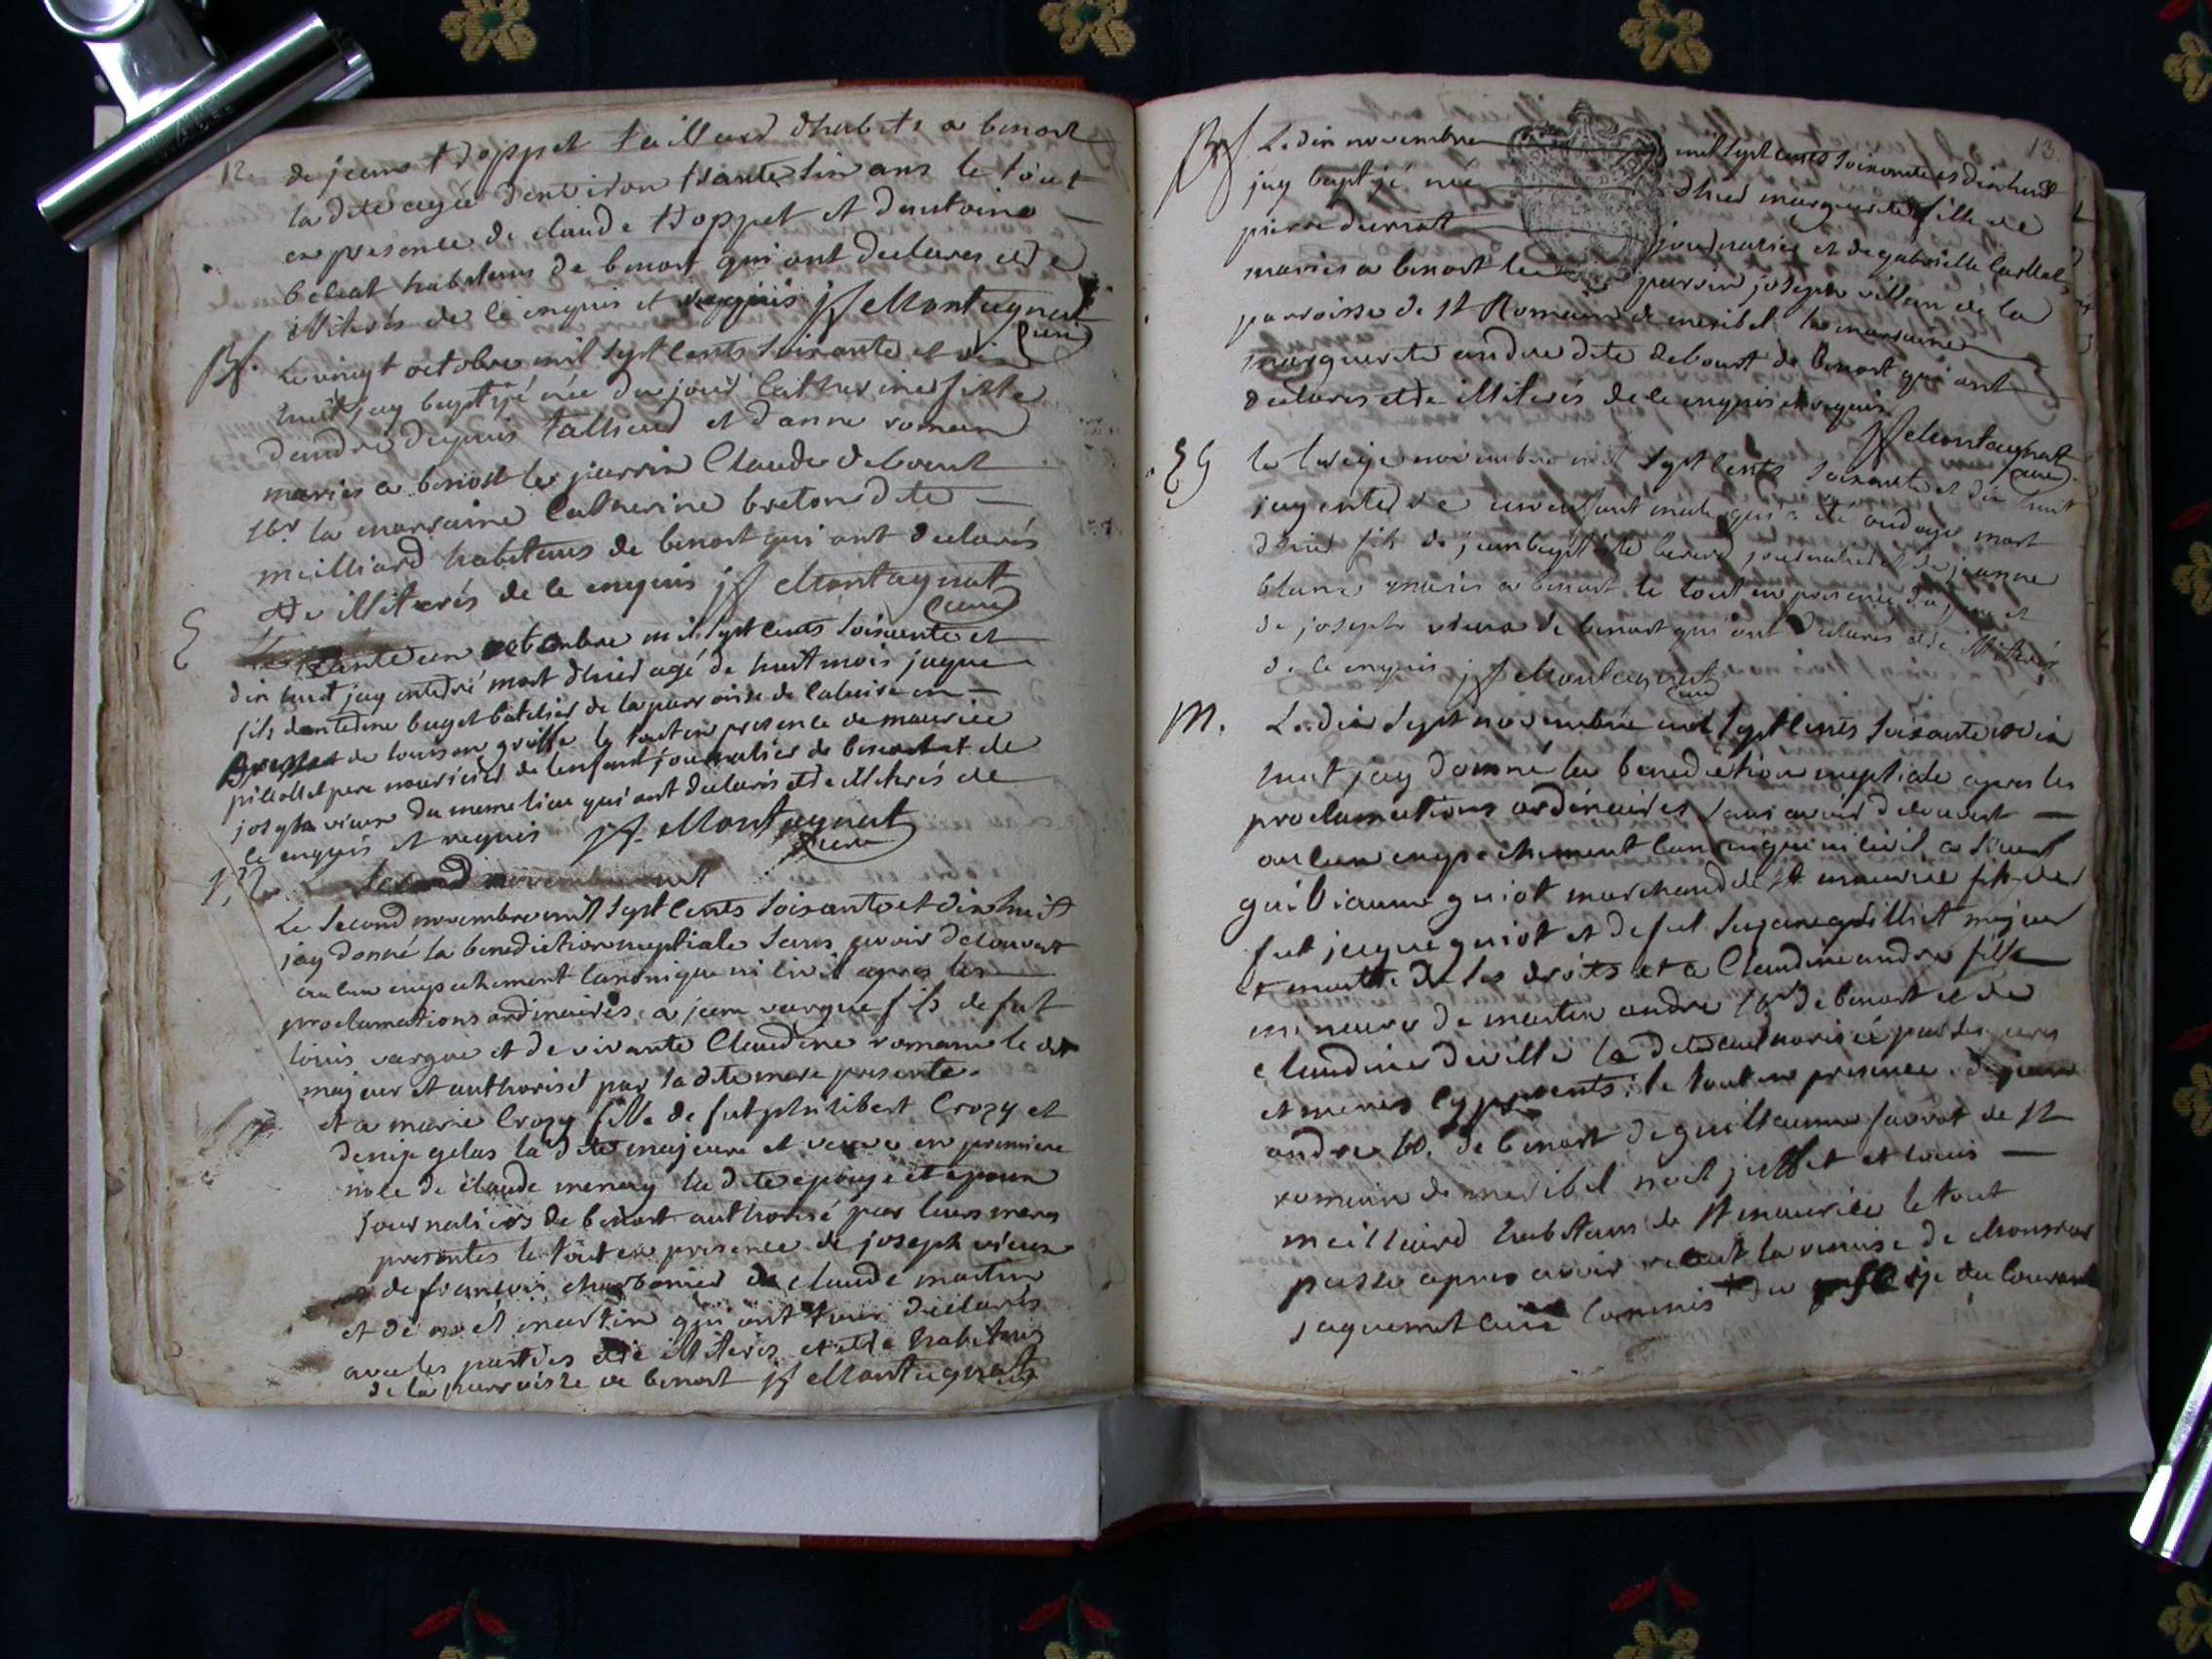 12.
de jean troppet taillieur d'habits a benost
la dite agée d'environ trante sin ans le tout
en presence de claude troppet et d'antoine
habitans de benost qui ont declarés etre
illiterés de ce enquis et requis jf Montagnat
curé
Bt. Le vingt octobre mil sept cents soixante et dix
huit jay baptisé née du jour Catherine fille
d'andre dupuis et d'anne romand
mariés a benost le parrin Claude debourt
la marraine Catherine breton dite
meilliard habitans de benost qui ont declarés
etre illiterés de ce enquis jf Montagnat
curé
E
Le trante un octobre mil sept cents soixante et
dix huit jay enterré mort d'hier agé de huit mois jaque
fils d'antoine buget batelier de la parroisse de
et de louison le tout en presence de maurice
pere nouricier de l'enfant journalier de benost et de
joseph vieux du meme lieu qui ont declarés etre illiterés de
ce enquis et requis jf. Montagnat
curé
Le second novembre mil sept cents soixante et dix huit
jay donné la benediction nuptiale sans avoir decouvert
aucun empechement canonique ni civil apres les
proclamations ordinaires a jean vargue fils de fut
louis vargue et de vivante Claudine romane le dit
majeur et authorisé par sa dite mere presente.
et a marie Crozy fille de fut philibert Crozy et
denise gelas la dite majeure et veuve en premiere
noce de claude menay la dite epouse et epoux
journaliers de benost authorisé par leurs meres
presentes le tout en presence de joseph vieux
de francois charbonier de claude martin
et de noel martin qui ont tous declarés
avec les parties etre illiterés et etre habitans
de la parroisse de benost jf Montagnat
13.
Bt Le dix novembre mil sept cents soixante et dix huit
jay baptisé née d'hier marguerite fille de
pierre durnat journalier et de gabrielle
mariés a benost le parrin joseph villan de la
parroisse de st Romain de meribel la marraine
marguerite andre dite debourt de Benost qui ont
declarés etre illiterés de ce enquis et requis
jf Montagnat
curé
Eg le treize novembre mil sept cents soixante et dix huit
jay enterré un enfant male qui a été ondoyé mort
d'hier fils de jean baptiste journalier et de jeanne
blanc mariés a benost le tout en presence du pere et
de joseph vieux de benost qui ont declarés etre illiterés
de ce enquis jf Montagnat
curé
M. Le dix sept novembre mil sept cents soixante et dix
huit jay donné la benediction nuptiale apres les
proclamations ordinaires sans avoir decouvert
aucun empechement canonique ni civil a sieur
guilliaume guiot marchand de st maurice fils de
fut jaque guiot et de fut majeur
et maitre de ses droits et a Claudine andre fille
mineure de martin andre de benost et de
claudine deville la dite authorisée par ses peres
et meres cy presents: le tout en presence de jean
andre de benost de guilliaume favrot de st
romain de meribel noel jullet et louis
meilliard habitans de st maurice le tout
passe apres avoir recut la remise de Monsieur
jaquemet curé commis du du courant